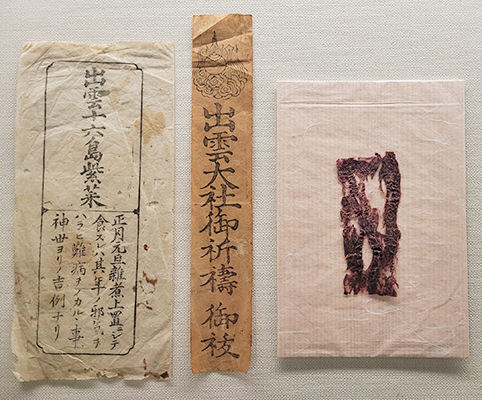 出雲十六島紫菜
正月元旦雜煮上置ニシテ
食スレハ其年ノ邪
ハラヒ難病ヲノカルヽ事
神世ヨリノ吉例ナリ
出雲大社御祈禱 御祓